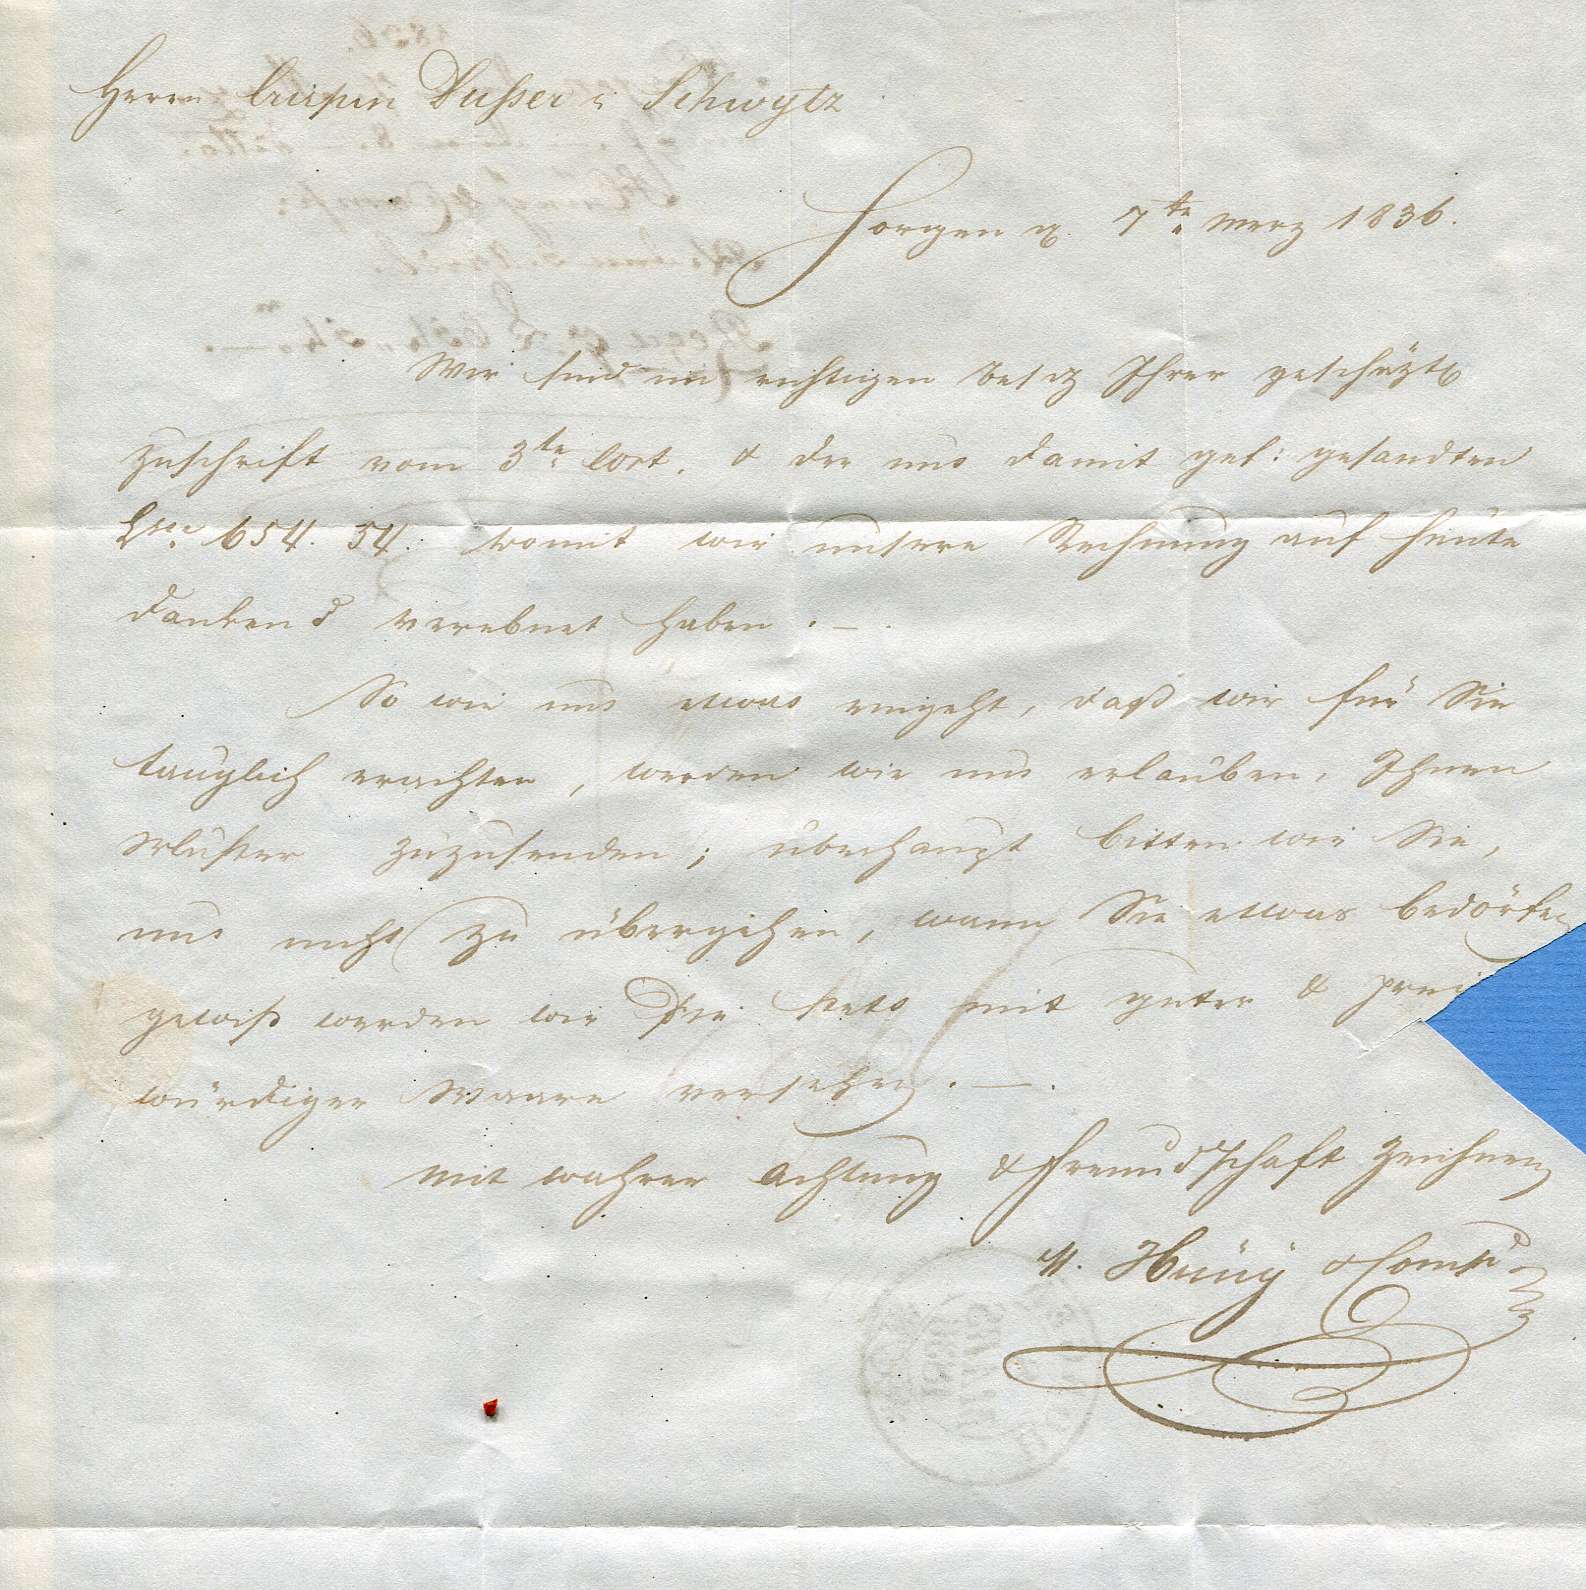 Herrn Crispin Dusser in Schwytz
Horgen d. 7te Merz 1836.
Wir sind im richtigen Besiz Ihrer geschäzt
Zuschrift vom 3te Cort. & der uns damit gef: gesandten
654. 54. womit wir unsere Rechnung auf heute
dankend verebnet haben . — .
So wie uns etwas eingeht, daß wir für Sie
tauglich erachten, werden wir uns erlauben, Ihnen
Muster zuzusenden; überhaupt bitten wir Sie,
uns nicht zu übergehen, wann Sie etwas bedörfen
gewiß werden wir Sie stets mit guter & prei
würdiger Waare versehen . — .
Mit wahrer Achtung & Freundschaft zeichnen
M. Hüny & Comp